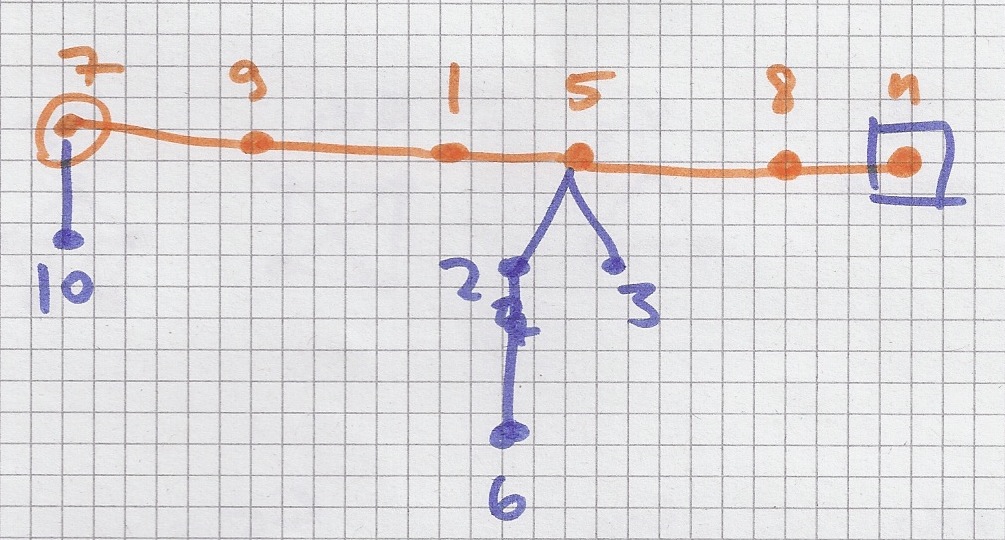 7 9 1 5 8 4
10 2 3
6